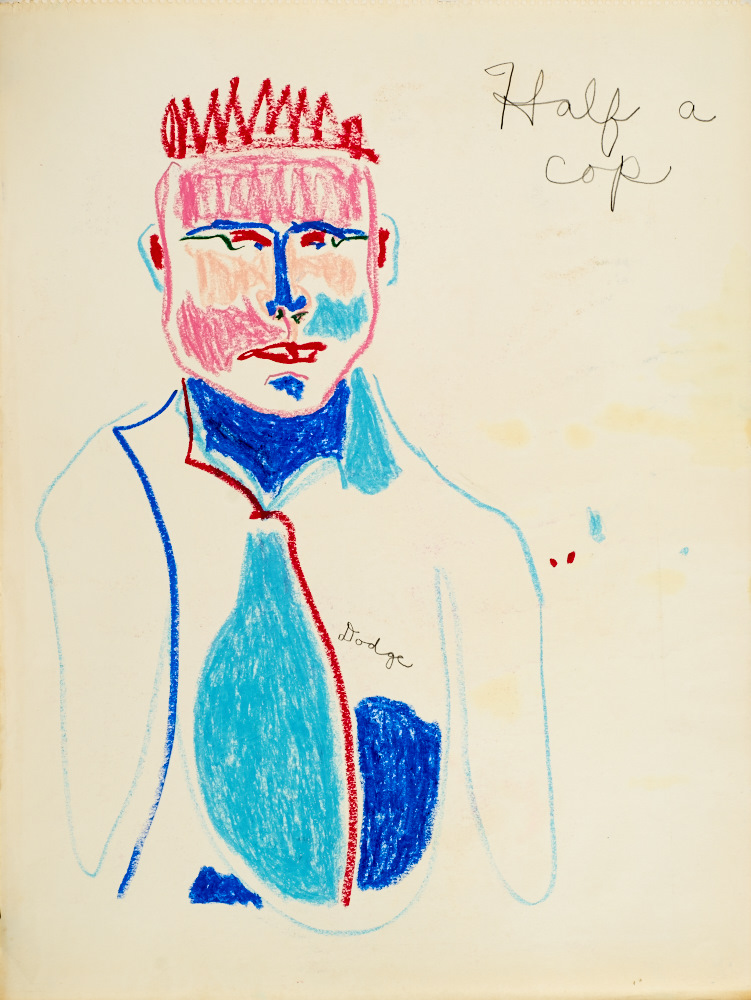 Half a
cop
Dodge